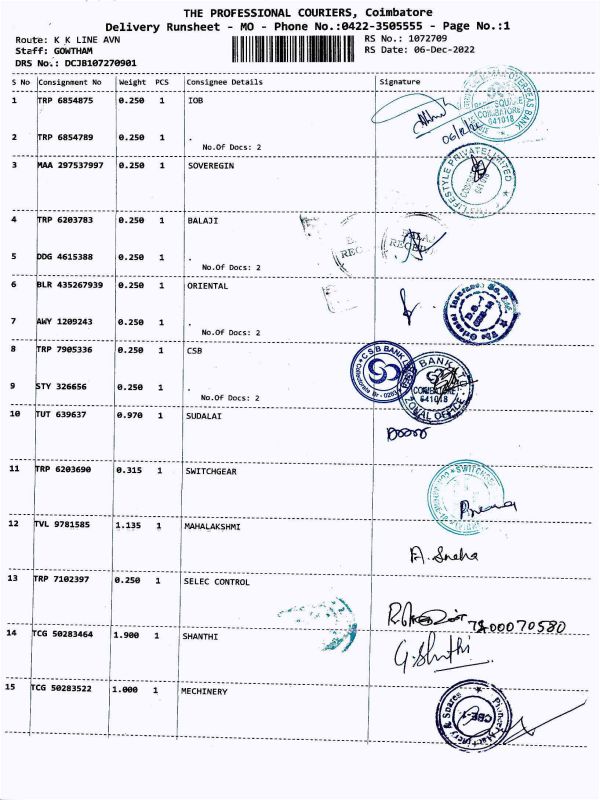 THE PROFESSIONAL COURIERS, Coimbatore
Delivery Runsheet - MO - Phone No.:0422-3505555 - Page No.:1
Route: K K LINE AVN
RS No.: 1072709
Staff: GOWTHAM
RS Date: 06-Dec-2022
DRS No.: DCJB107270901
S No Consignment No Weight PCS Consignee Details Signature
1 TRP 6854875 0.250 1 IOB
06/12/22
2 TRP 6854789 0.250 1 .
No.Of Docs: 2
3 MAA 297537997 0.250 1 SOVEREGIN
4 TRP 6203783 0.250 1 BALAJI
5 DDG 4615388 0.250 1 .
No.Of Docs: 2
6 BLR 435267939 0.250 1 ORIENTAL
7 AWY 1209243 0.250 1 .
No.Of Docs: 2
8 TRP 7905336 0.250 1 CSB
CSB BANK
BANK
COIMBATORE
641018
ZONAL OFFICE
9 STY 326656 0.250 1 .
No.Of Docs: 2
10 TUT 639637 0.970 1 SUDALAI
11 TRP 6203690 0.315 1 SWITCHGEAR
12 TVL 9781585 1.135 1 MAHALAKSHMI
A. Sneha
13 TRP 7102397 0.250 1 SELEC CONTROL
14 TCG 50283464 1.900 1 SHANTHI
15 TCG 50283522 1.000 1 MECHINERY